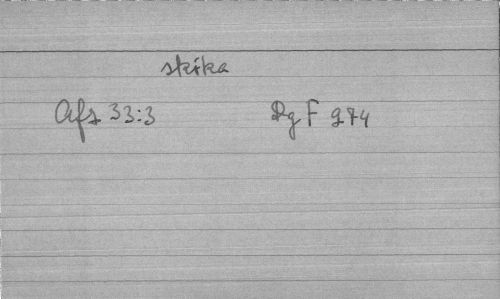 skika
Afs 33:3 Dg F 974